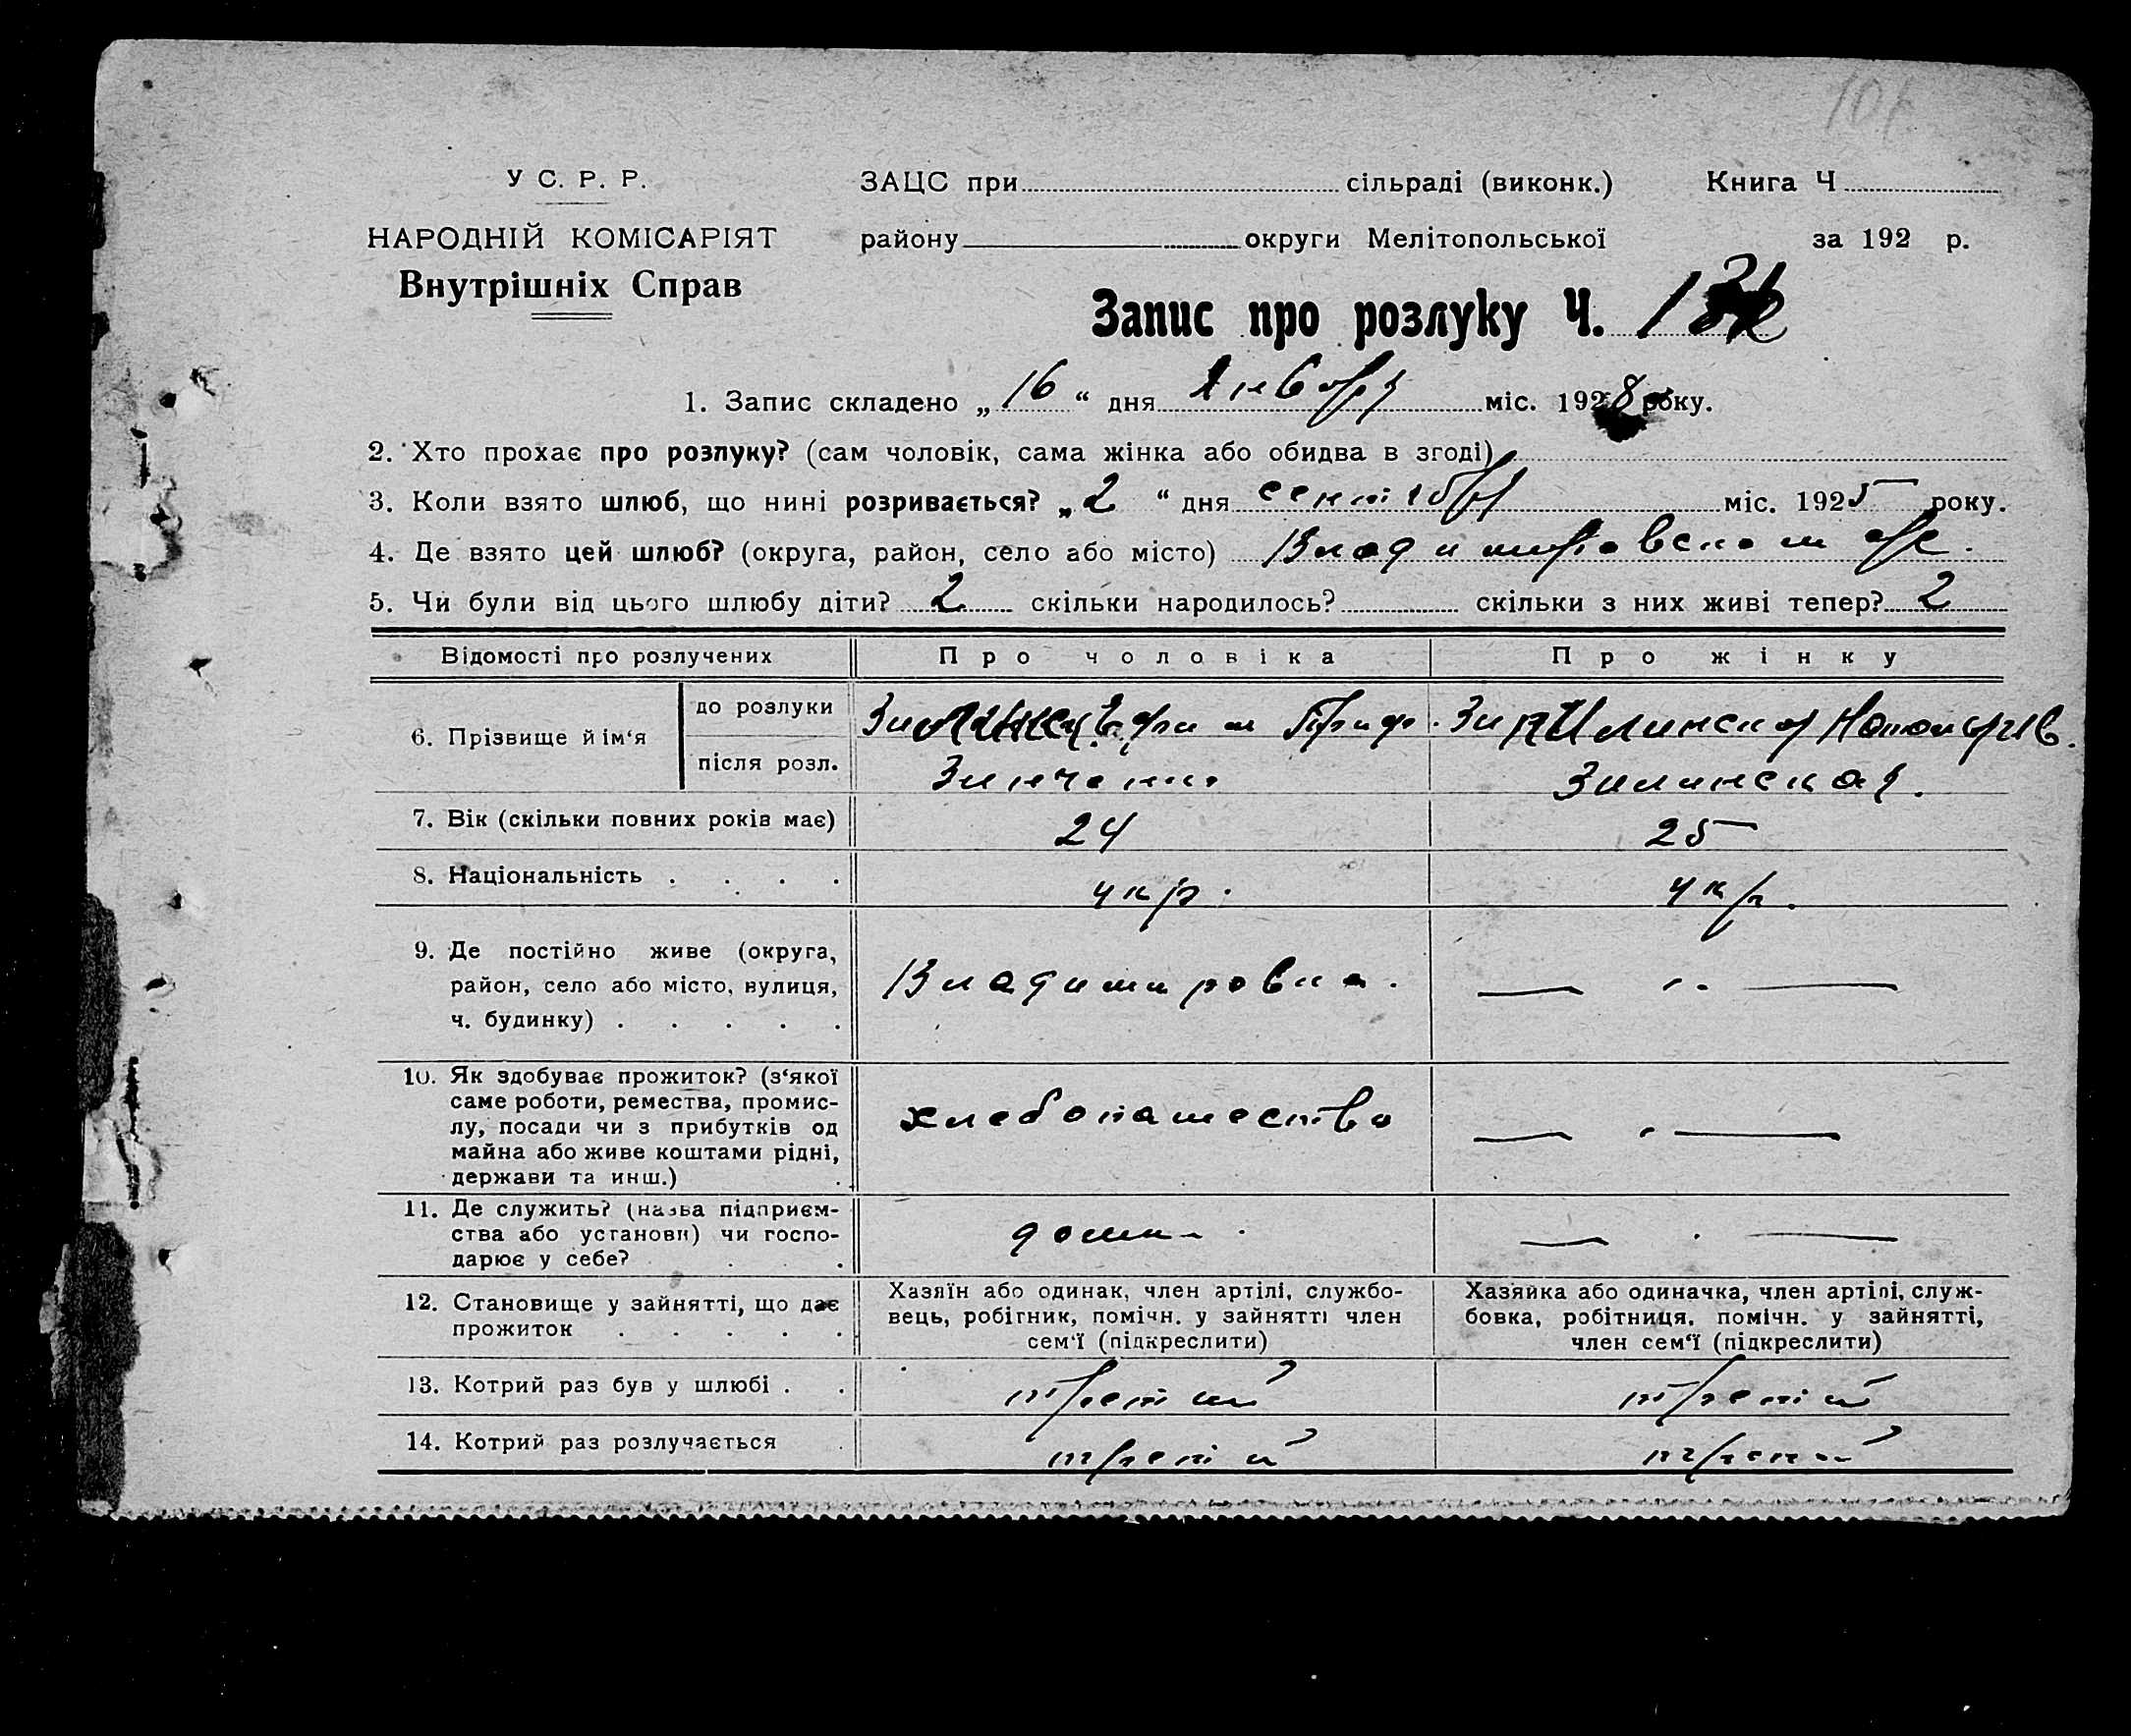 У С. Р. Р.
НАРОДНІЙ КОМІСАРІЯТ
Внутрішніх Справ
ЗАЦС при сільраді (виконк.) Книга Ч
району округи Мелітопольської за 192 р.
Запис про розлуку Ч.
1. Запис складено „16“ дня Января міс. 1928 року.
2. Хто прохає про розлуку? (сам чоловік, сама жінка або обидва в згоді)
3. Коли взято шлюб, що нині розривається? „2“ дня сентября міс. 1925 року.
4. Де взято цей шлюб? (округа, район, село або місто)
5. Чи були від цього шлюбу діти? 2 скільки народилось? скільки з них живі тепер? 2
Відомості про розлучених Про чоловіка Про жінку
6. Прізвище й ім‘я
до розлуки
після розл. Зинченко Зилинская.
7. Вік (скільки повних років має) 24 25
8. Національність . . . . укр. укр.
9. Де постійно живе (округа,
район, село або місто, вулиця,
ч. будинку) . . . . . Владимировка. — „ —
10. Як здобуває прожиток? (з‘якої
саме роботи, ремества, промис-
лу, посади чи з прибутків од
майна або живе коштами рідні,
держави та инш.) хлебопашество — „ —
11. Де служить? (назва підприєм-
ства або установи) чи госпо-
дарює у себе? дома. — „ —
12. Становище у зайнятті, що дає
прожиток . . . . .
Хазяїн або одинак, член артілі, службо-
вець, робітник, помічн. у зайнятті член
сем‘ї (підкреслити)
Хазяйка або одиначка, член артілі, служ-
бовка, робітниця, помічн. у зайнятті,
член сем‘ї (підкреслити)
13. Котрий раз був у шлюбі . . третий третий
14. Котрий раз розлучається третий третий